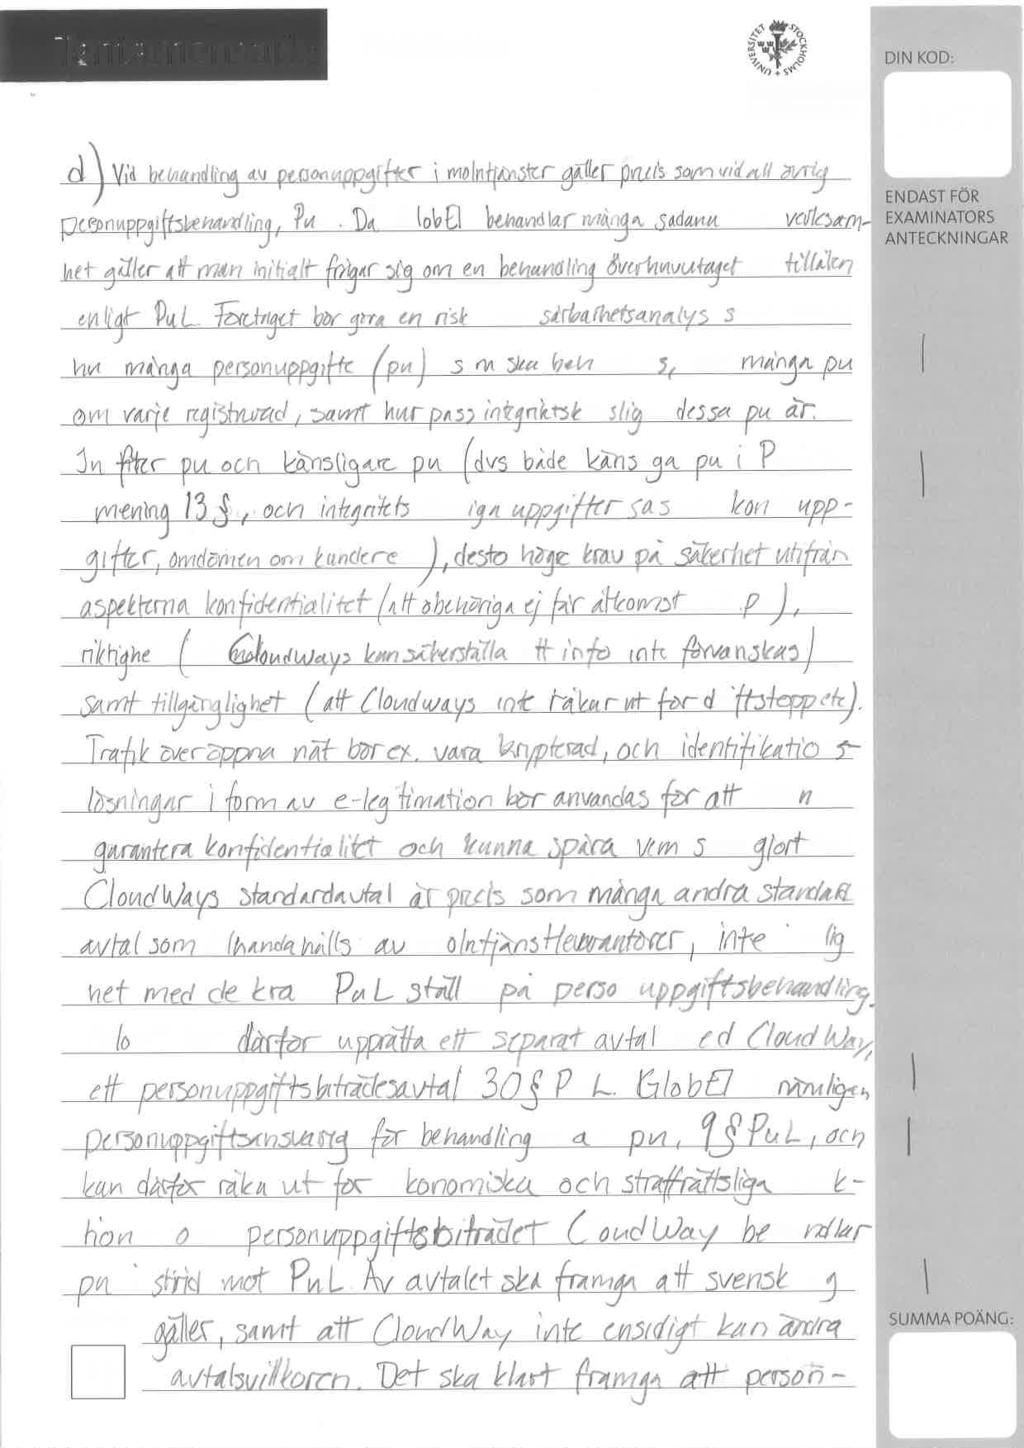 UNIVERSITET STOCKHOLMS
DIN KOD:
ENDAST FÖR
EXAMINATORS
ANTECKNINGAR
d) Vid behandling av personuppgifter i molntjänster gäller precis som vid all övrig
personuppgiftsbehandling, Pu . Då lobEl behandlar många sådana verksam-
het gäller att man initialt frågar sig om en behandling överhuvutaget tillåten
enligt PuL. Företaget bör göra en risk sårbarhetsanalys s
hu många personuppgifte (pu) s m ska beh s, många pu
om varje registrerad, samt hur pass integritetsk slig dessa pu är.
Ju fler pu och känsligare pu (dvs både käns ga pu i P
mening 13 §, och integritets iga uppgifter sås kon upp-
gifter, omdömen om kundere ), desto höge krav på säkerhet utifrån
aspekterna konfidentialitet (att obehöriga ej får åtkomst p ),
riktighe ( Cloudways kan säkerställa tt info inte förvanskas)
samt tillgänglighet (att Cloudways inte råkar ut för d iftstopp etc).
Trafik över öppna nät bör ex. vara krypterad, och identifikatio s-
lösningar i form av e-leg timation bör användas för att n
garantera konfidentialitet och kunna spåra vem s gjort
CloudWays standardavtal är precis som många andra standard
avtal som ihandahålls av olntjänstleverantörer, inte lig
het med de kra PuL ställ på perso uppgiftsbehandling.
lo därför upprätta ett separat avtal ed CloudWay,
ett personuppgiftsbiträdesavtal 30 § P L. GlobEl nämligen
personuppgiftsansvarig för behandling a pu, 9 § PuL, och
kan därför råka ut för konomiska och straffrättsliga k-
tion o personuppgiftsbiträdet C oudWay be ndlar
pu strid mot PuL. Av avtalet ska framgå att svensk g
gäller, samt att CloudWay inte ensidigt kan ändra
avtalsvillkoren. Det ska klart framgå att person-
SUMMA POÄNG: